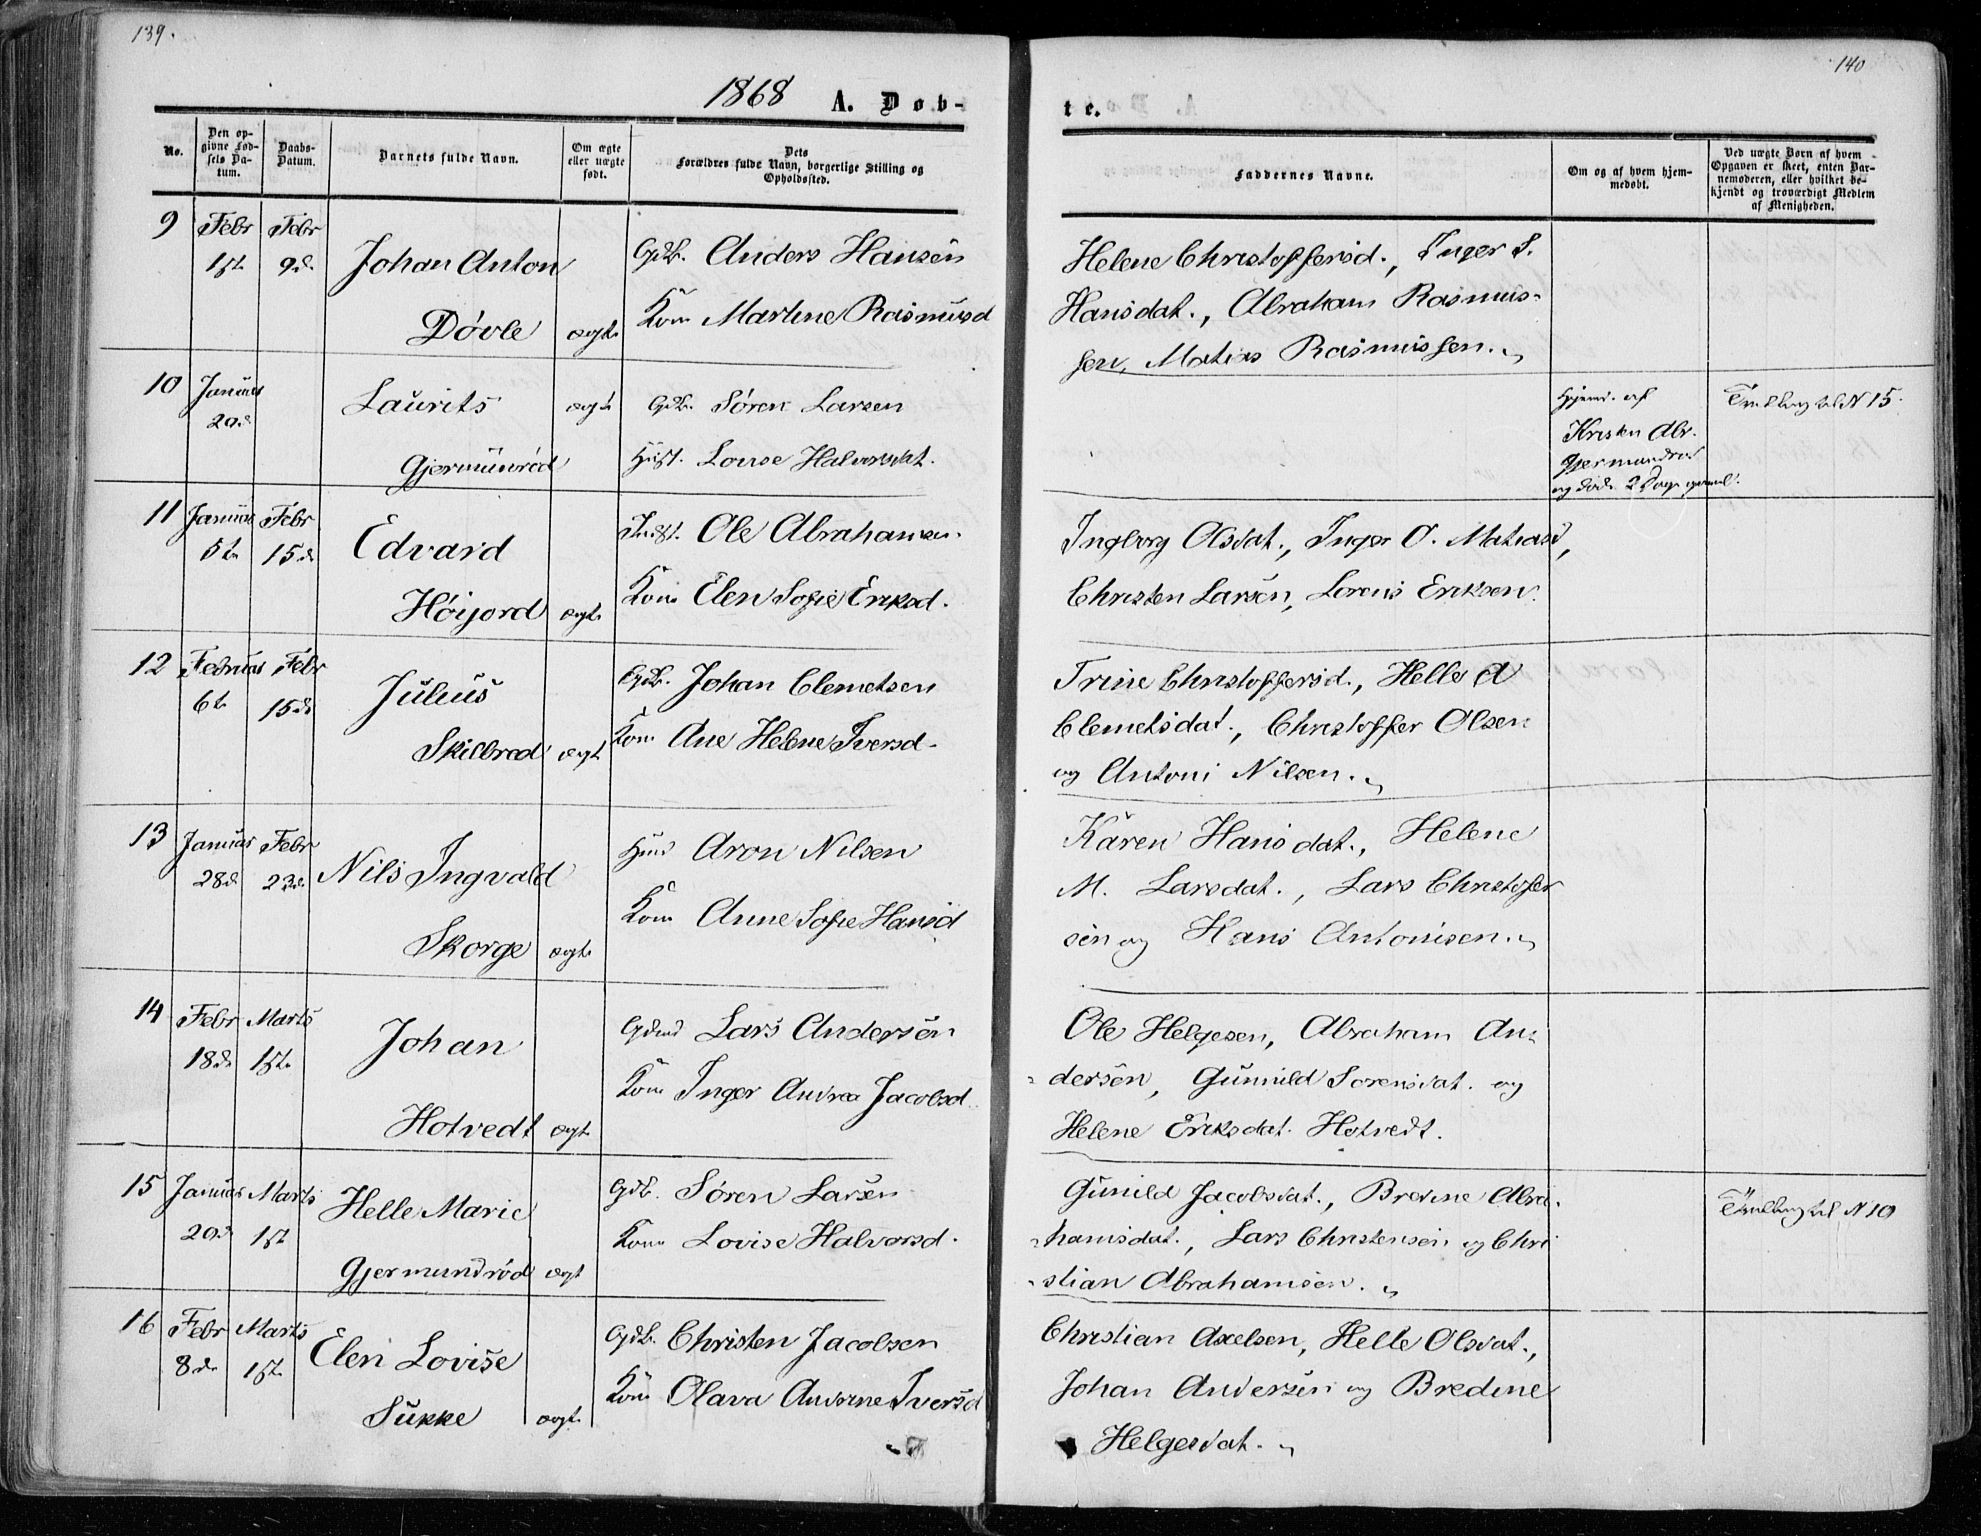 139.
140
1868 A. Døb-
te.
No.
Den op-
givne Fød-
sels Da-
tum.
Daabs-
Datum.
Barnets fulde Navn.
Om ægte
eller uægte
født.
Dets
Forældres fulde Navn, borgerlige Stilling og
Opholdssted.
Faddernes Navne.
Om og af hvem hjem-
medøbt.
Ved uægte Børn af hvem
Opgaven er skeet, enten Bar-
nemoderen, eller hvilket be-
kjendt og troværdigt Medlem
af Menigheden.
9 Febr Febr
1ste 9de Johan Anton
Døvle ægte
Gdb. Anders Hansen
Kone Martine Rasmusd
Helene Christoffersd., Inger S.
Hansdat., Abraham Rasmus-
sen, Matias Rasmussen.
10 Januar
20de
Laurits ægte
Gjermundrød
Gdb. Søren Larsen
Hust. Lovise Halvorsdat.
Hjemd. af
Kristen Abr.
Gjermundrød
og døde 2 Dage gammel.
Tvilling til N 15.
11 Januar Febr
5te 15de
Edvard
Høijord ægte
Inst. Ole Abrahamsen.
Kone Elen Sofie Eriksd.
Ingborg Olsdat., Inger O. Matiasd,
Christen Larsen, Lorens Eriksen.
12 Februar Febr
6te 15de
Julius
Skilbred ægte
Gdb. Johan Clemetsen
Kone Ane Helene Iversd.
Trine Christoffersd., Helle A
Clemetsdat., Christoffer Olsen
og Antoni Nilsen.
13 Januar Febr
28de 23de
Nils Ingvald
Skorge ægte
Hmd Aron Nilsen
Kone Anne Sofie Hansd
Karen Hansdat., Helene
M. Larsdat., Lars Christofer
sen og Hans Antonisen.
14 Febr Marts
18de 1ste
Johan
Hotvedt ægte
Gdmd Lars Andersen
Kone Inger Andrea Jacobsd.
Ole Helgesen, Abraham An-
dersen, Gunnild Sorensdat. og
Helene Eriksdat. Hotvedt.
15 Januar Marts
20de 1ste
Helle Marie
Gjermundrød ægte
Gdb. Søren Larsen
Kone Lovise Halvorsd.
Gunild Jacobsdat., Bredine Abra-
hamsdat., Lars Christensen og Chri
stian Abrahamsen.
Tvilling til N 10
16 Febr Marts
8de 1ste
Elen Lovise
Sukke ægte
Gdb. Christen Jacobsen
Kone Olava Andrine Iversd
Christian Axelsen, Helle Olsdat.,
Johan Andersen og Bredine
Helgesdat.